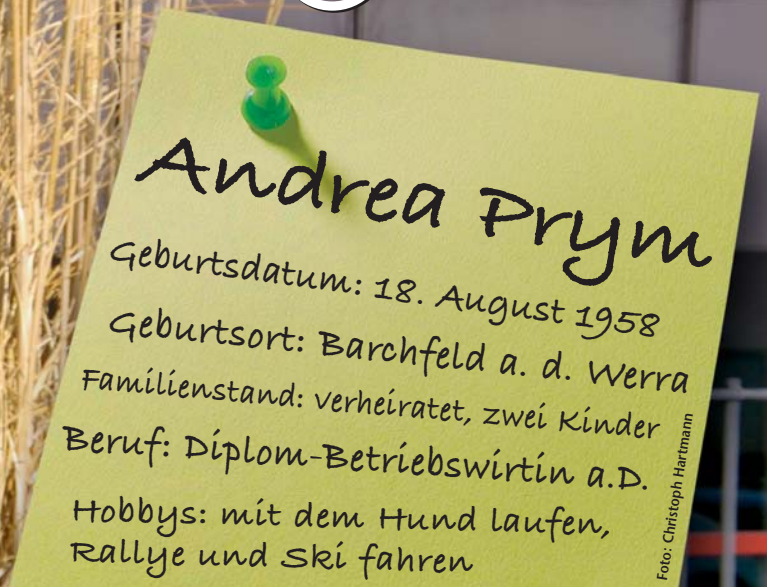 Andrea Prym
Geburtsdatum: 18. August 1958
Geburtsort: Barchfeld a. d. Werra
Familienstand: verheiratet, zwei Kinder
Beruf: Diplom-Betriebswirtin a.D.
Hobbys: mit dem Hund laufen,
Rallye und Ski fahren
Foto: Christoph Hartmann